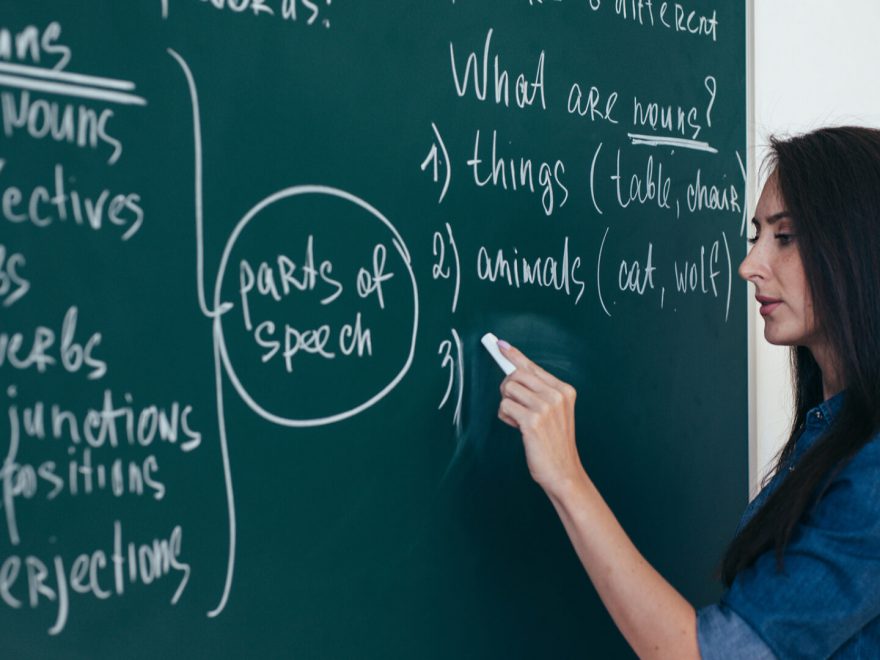 words:
uns
Nouns
ectives
bs
verbs
junctions
positions
erjections
parts of
speech
different
What are nouns?
1) things (table, chair)
2) animals (cat, wolf)
3)